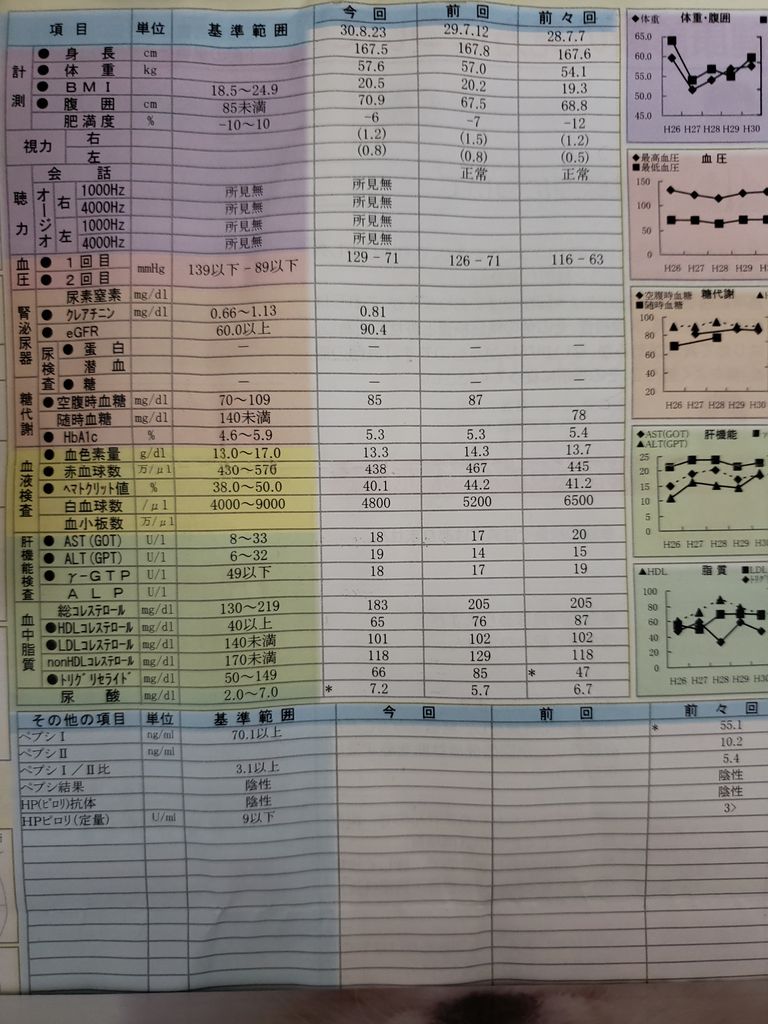 項目 単位 基準範囲 今回 前回 前々回
30.8.23 29.7.12 28.7.7
計測
● 身長 cm 167.5 167.8 167.6
● 体重 kg 57.6 57.0 54.1
● BMI 18.5～24.9 20.5 20.2 19.3
● 腹囲 cm 85未満 70.9 67.5 68.8
肥満度 % -10～10 -6 -7 -12
視力 右 (1.2) (1.5) (1.2)
左 (0.8) (0.8) (0.5)
聴力
会話 正常 正常
オージオ 右 1000Hz 所見無 所見無
4000Hz 所見無 所見無
左 1000Hz 所見無 所見無
4000Hz 所見無 所見無
血圧 ● 1回目 mmHg 139以下 - 89以下 129 - 71 126 - 71 116 - 63
● 2回目
腎泌尿器
尿素窒素 mg/dl
● クレアチニン mg/dl 0.66～1.13 0.81
● eGFR 60.0以上 90.4
尿検査 ● 蛋白 － － － －
潜血
● 糖 － － － －
糖代謝
● 空腹時血糖 mg/dl 70～109 85 87
随時血糖 mg/dl 140未満 78
● HbA1c % 4.6～5.9 5.3 5.3 5.4
血液検査
● 血色素量 g/dl 13.0～17.0 13.3 14.3 13.7
● 赤血球数 万/μl 430～570 438 467 445
● ヘマトクリット値 % 38.0～50.0 40.1 44.2 41.2
白血球数 /μl 4000～9000 4800 5200 6500
血小板数 万/μl
肝機能検査
● AST(GOT) U/l 8～33 18 17 20
● ALT(GPT) U/l 6～32 19 14 15
● γ-GTP U/l 49以下 18 17 19
ALP U/l
血中脂質
総コレステロール mg/dl 130～219 183 205 205
●HDLコレステロール mg/dl 40以上 65 76 87
●LDLコレステロール mg/dl 140未満 101 102 102
nonHDLコレステロール mg/dl 170未満 118 129 118
●トリグリセライド mg/dl 50～149 66 85 * 47
尿酸 mg/dl 2.0～7.0 * 7.2 5.7 6.7
その他の項目 単位 基準範囲 今回 前回 前々回
ペプシⅠ ng/ml 70.1以上 * 55.1
ペプシⅡ ng/ml 10.2
ペプシⅠ／Ⅱ比 3.1以上 5.4
ペプシ結果 陰性 陰性
HP(ピロリ)抗体 陰性 陰性
HPピロリ(定量) U/ml 9以下 3>
◆体重 体重・腹囲 ■
65.0
60.0
55.0
50.0
45.0
H26 H27 H28 H29 H30
◆最高血圧 血圧
■最低血圧
150
100
50
0
H26 H27 H28 H29
◆空腹時血糖 糖代謝 ▲
■随時血糖
100
80
60
40
20
H26 H27 H28 H29 H30
◆AST(GOT) 肝機能 ■
▲ALT(GPT)
25
20
15
10
5
0
H26 H27 H28 H29 H30
▲HDL 脂質 ■LDL
100
80
60
40
20
0
H26 H27 H28 H29 H30